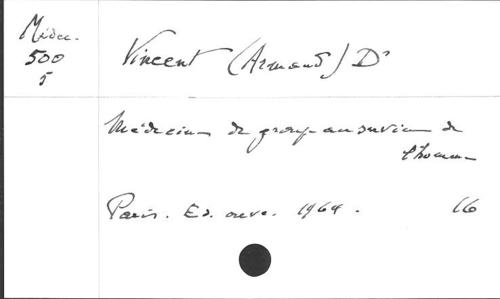 Médec.
500
5
Vincent (Armand) Dr
Médecine de groupe au service de
l'homme
Paris. Ed. ouvr. 1964. 16